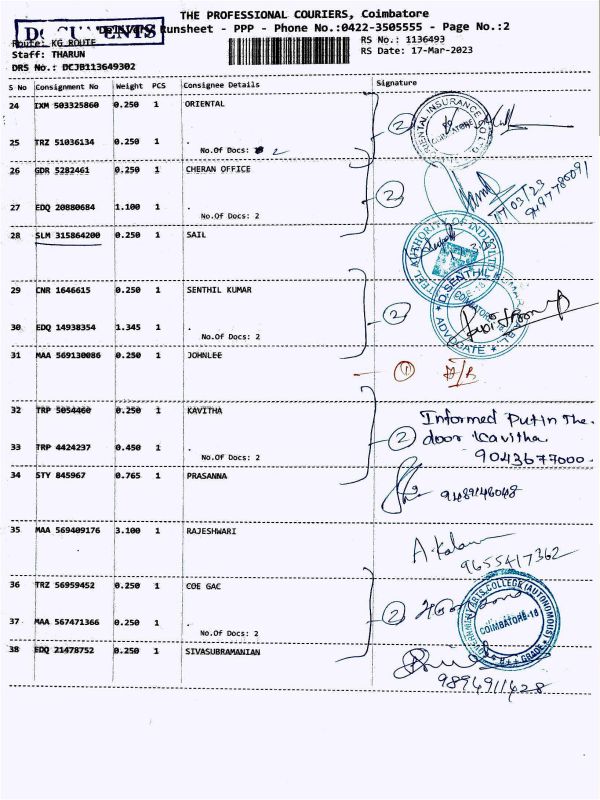 THE PROFESSIONAL COURIERS, Coimbatore
DOCUMENTS
Delivery Runsheet - PPP - Phone No.:0422-3505555 - Page No.:2
Route: KG ROUTE
RS No.: 1136493
Staff: THARUN
RS Date: 17-Mar-2023
DRS No.: DCJB113649302
S No Consignment No Weight PCS Consignee Details Signature
24 IXM 503325860 0.250 1 ORIENTAL
ORIENTAL INSURANCE CO LTD
COIMBATORE
2
25 TRZ 51036134 0.250 1 .
No.Of Docs: 2
26 GDR 5282461 0.250 1 CHERAN OFFICE
2
17/03/23
27 EDQ 20880684 1.100 1 .
No.Of Docs: 2
28 SLM 315864200 0.250 1 SAIL
STEEL AUTHORITY OF INDIA LTD
29 CNR 1646615 0.250 1 SENTHIL KUMAR
D.SENTHIL KUMAR
ADVOCATE
2
30 EDQ 14938354 1.345 1 .
No.Of Docs: 2
31 MAA 569130086 0.250 1 JOHNLEE
1
32 TRP 5054460 0.250 1 KAVITHA
Informed Put in The.
2 door Kavitha
9043677000.
33 TRP 4424297 0.450 1 .
No.Of Docs: 2
34 STY 845967 0.765 1 PRASANNA
9489146048
35 MAA 569409176 3.100 1 RAJESHWARI
A.Kalam
9655417362
36 TRZ 56959452 0.250 1 COE GAC
2
GOVERNMENT ARTS COLLEGE (AUTONOMOUS)
COIMBATORE-18
B++ GRADE
37 MAA 567471366 0.250 1 .
No.Of Docs: 2
38 EDQ 21478752 0.250 1 SIVASUBRAMANIAN
9894911428